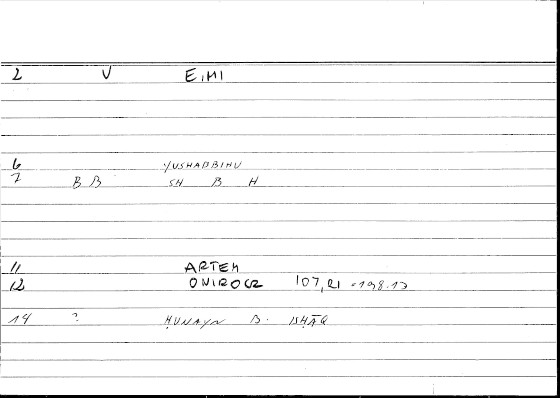 2 V EiMI
6 YUSHABBIHU
7 BB SH B H
11 ARTEM
12 ONIROCR 107,21 - 198.13
14 ? ḤUNAYN B. ISḤĀQ